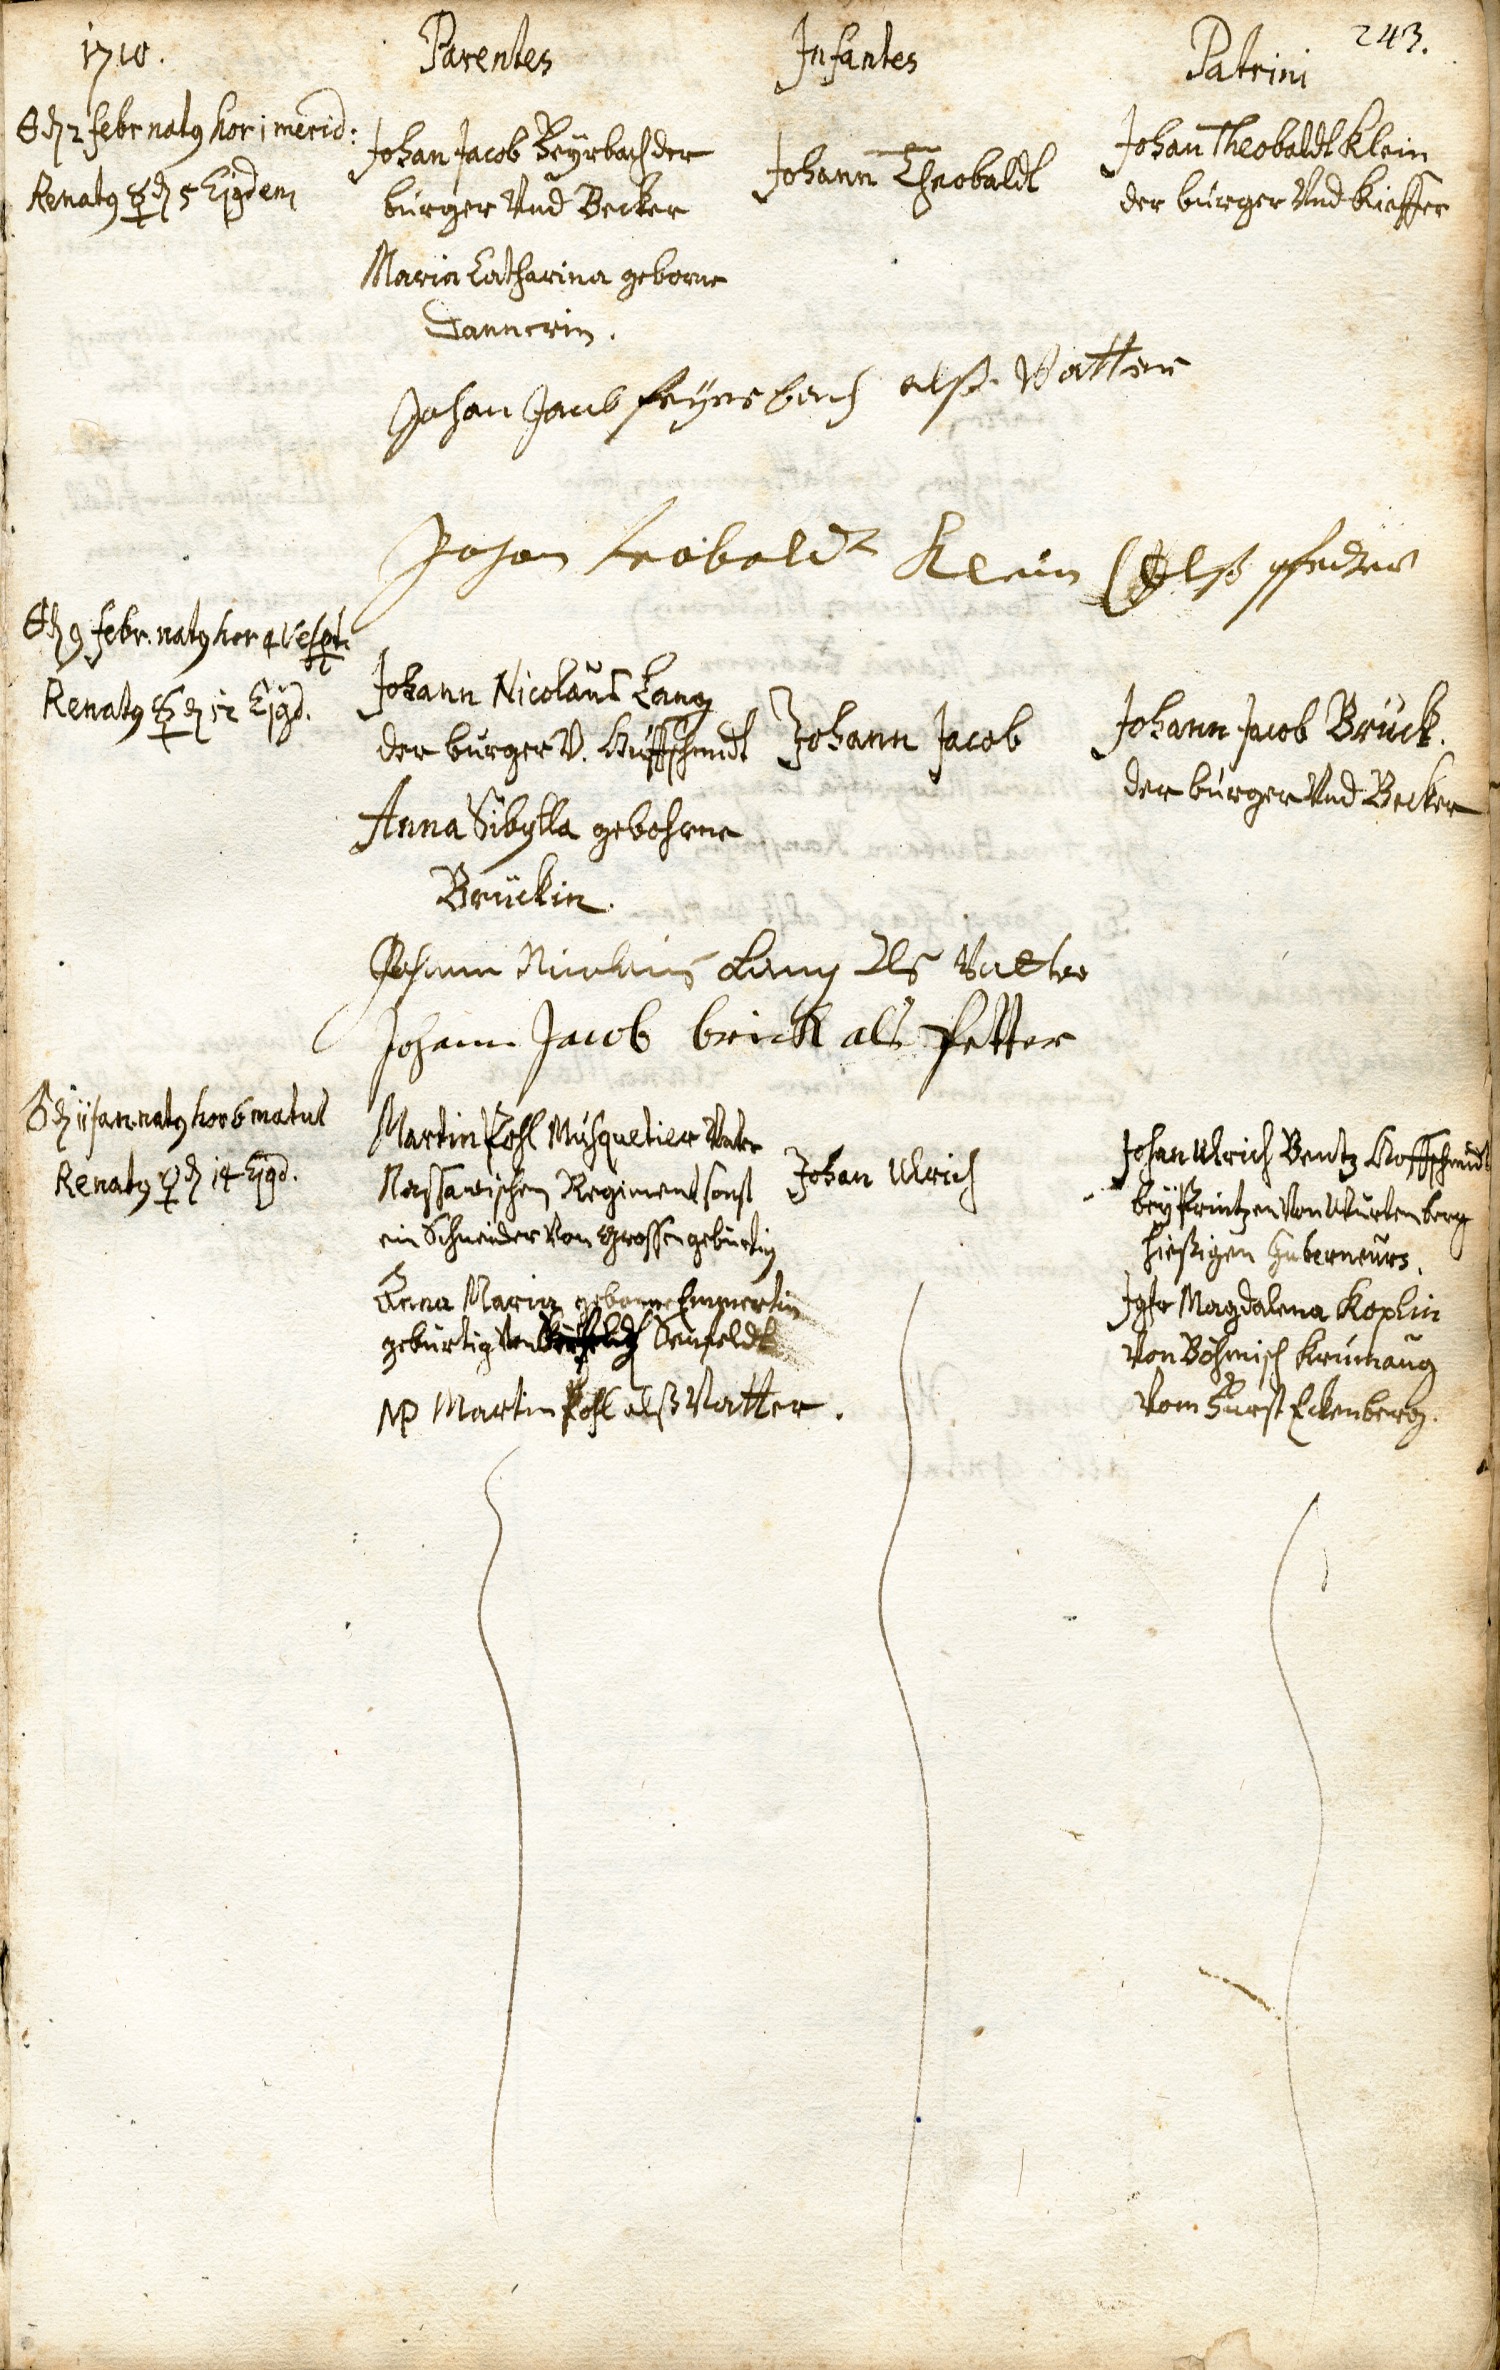 1710.
Parentes
Infantes
Patrini
243.
d 2 febr natq hor 1 merid:
Renatq ☿ d 5 Ejqdem
Johan Jacob Beÿrbach der
bürger Vnd Becker
Maria Catharina geborne
Tannerin.
Johann Theobaldt
Johan Theobaldt Klein
der bürger Vnd Kieffer
Johan Jacob feÿersbach alß Vatter
Johan teobaldt Klein alß pfedter
d 9 febr. natq hor 4 Vesp
Renatq ☿ d 12 Ejqd.
Johann Nicolaus Lang
der bürger V. Huffschmidt
Anna Sibylla gebohrne
Brückin.
Johann Jacob
Johann Jacob Brück.
der bürger Vnd Becker
Johann Nicolaus Lang Als Vatter
Johann Jacob brick als Petter
♂ d 11 jan. natq hor 6 matut
Renatq d 14 Ejqd.
Martin Pohl Musquetier Vnter
Nassauischen Regiment sonst
ein Schneider Von Grossen gebürtig
Anna Maria geborne Emmertin
gebürtig Von Senfeldt
NP Martin Pohl alß Vatter.
Johan Ulrich
Johan Ulrich Bentz Hoffschmidt
beÿ Printzen Von Würtenberg
hießigen Guberneurs.
Jgfr Magdalena Koplin
Von Böhmisch Krumaug
Vom Fürst Eckenberg.